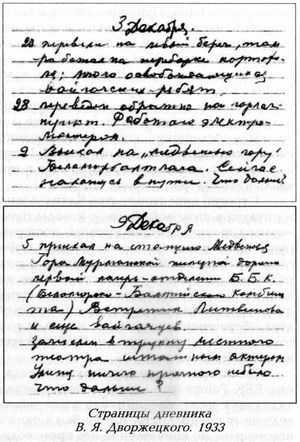 3 Декабря.
23 перевели на левый берег, там
работал на переборке картофе-
ля; много освобождающихся
вайгачских ребят.
28 переведен обратно на горлаг-
пункт. Работаю электро-
монтером.
2 Выехал на „медвежью гору"
Белморбалтлага. Сейчас
нахожусь в пути. Что дальше?
9 Декабря
5 приехал на станцию Медвежья
Гора Мурманской железной дороги
первый лагерь-отделение Б.Б.К.
(Беломорско-Балтийский Комбина
та) Встретил Литвинова
и еще вайгачцев.
зачислен в труппу местного
театра штатным актером
ничего приятного небыло
что дальше?
Страницы дневника
В. Я. Дворжецкого. 1933